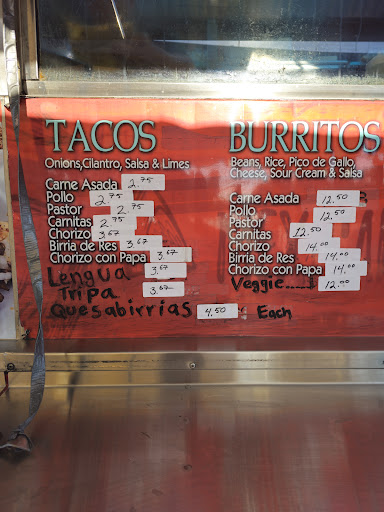 TACOS
Onions,Cilantro, Salsa & Limes
Carne Asada 2.75
Pollo 2.75
Pastor 2.75
Carnitas 2.75
Chorizo 3.67
Birria de Res 3.67
Chorizo con Papa 3.67
Lengua 3.67
Tripa 3.67
Quesabirrias 4.50 Each
BURRITOS
Beans, Rice, Pico de Gallo,
Cheese, Sour Cream & Salsa
Carne Asada 12.50
Pollo 12.50
Pastor
Carnitas 12.50
Chorizo 14.00
Birria de Res 14.00
Chorizo con Papa 14.00
Veggie 12.00